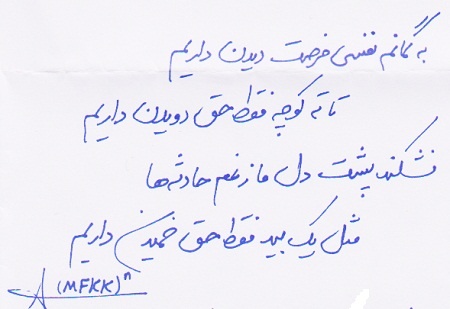 به گمانم نفسی فرصت دیدن داریم
تا ته کوچه فقط حق دویدن داریم
نشکند پشت دل ما ز غم حادثه ها
مثل یک بید فقط حق خمیدن داریم
(MFKK)ⁿ